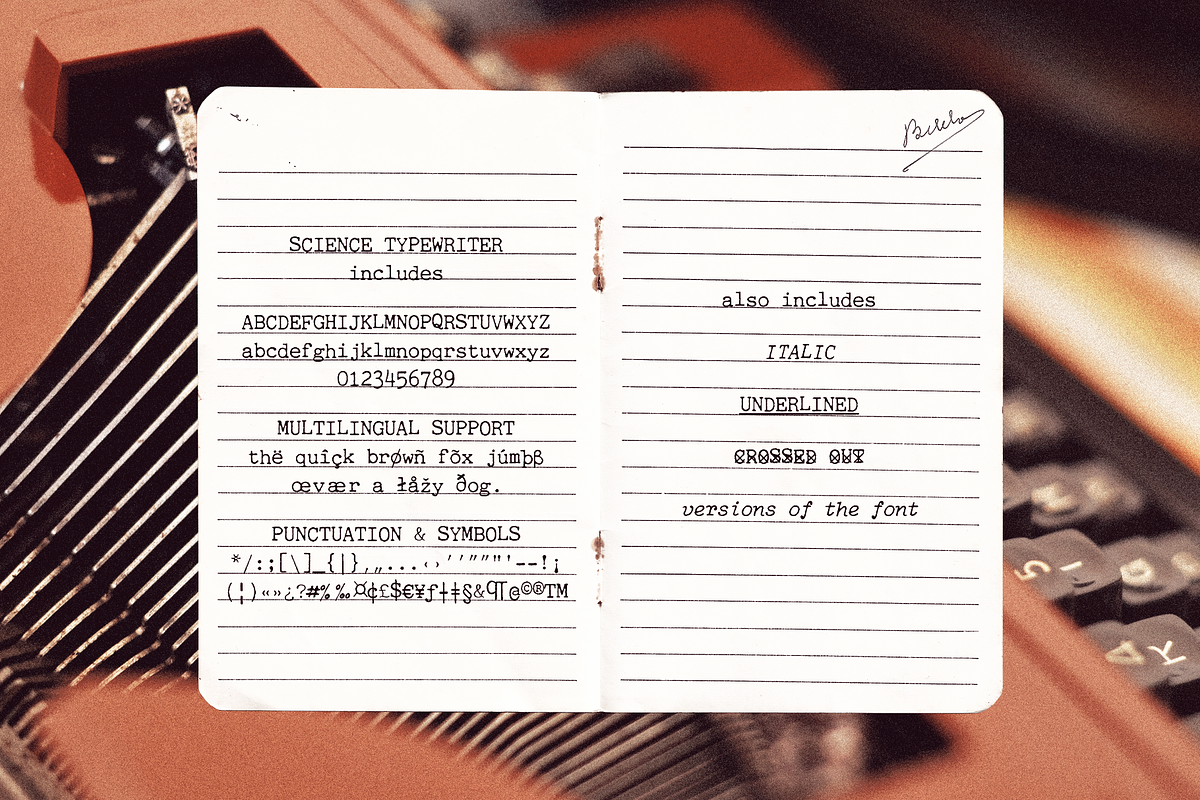 SCIENCE TYPEWRITER
includes
ABCDEFGHIJKLMNOPQRSTUVWXYZ
abcdefghijklmnopqrstuvwxyz
0123456789
MULTILINGUAL SUPPORT
thë quîçk brøwñ fõx júmþß
œvær a łåžy ðog.
PUNCTUATION & SYMBOLS
*/:;[\]_{|},„...‹›‘’“”"'--!¡
(¦)«»¿?#%‰¤¢£$€¥ƒ†‡§&¶@©®TM
also includes
ITALIC
UNDERLINED
CROSSED OUT
versions of the font